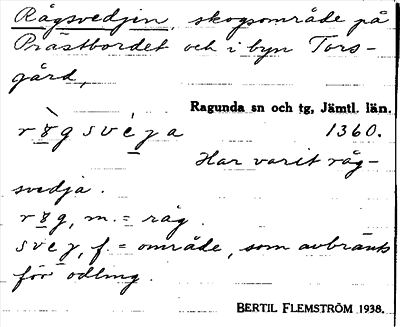 Rågsvedjen, skogsområde på
Prästbordet och i byn Tors-
gård,
Ragunda sn och tg, Jämtl. län.
1360.
Har varit råg-
svedja.
m. = råg.
f. = område, som avbränts
för odling.
BERTIL FLEMSTRÖM 1938.